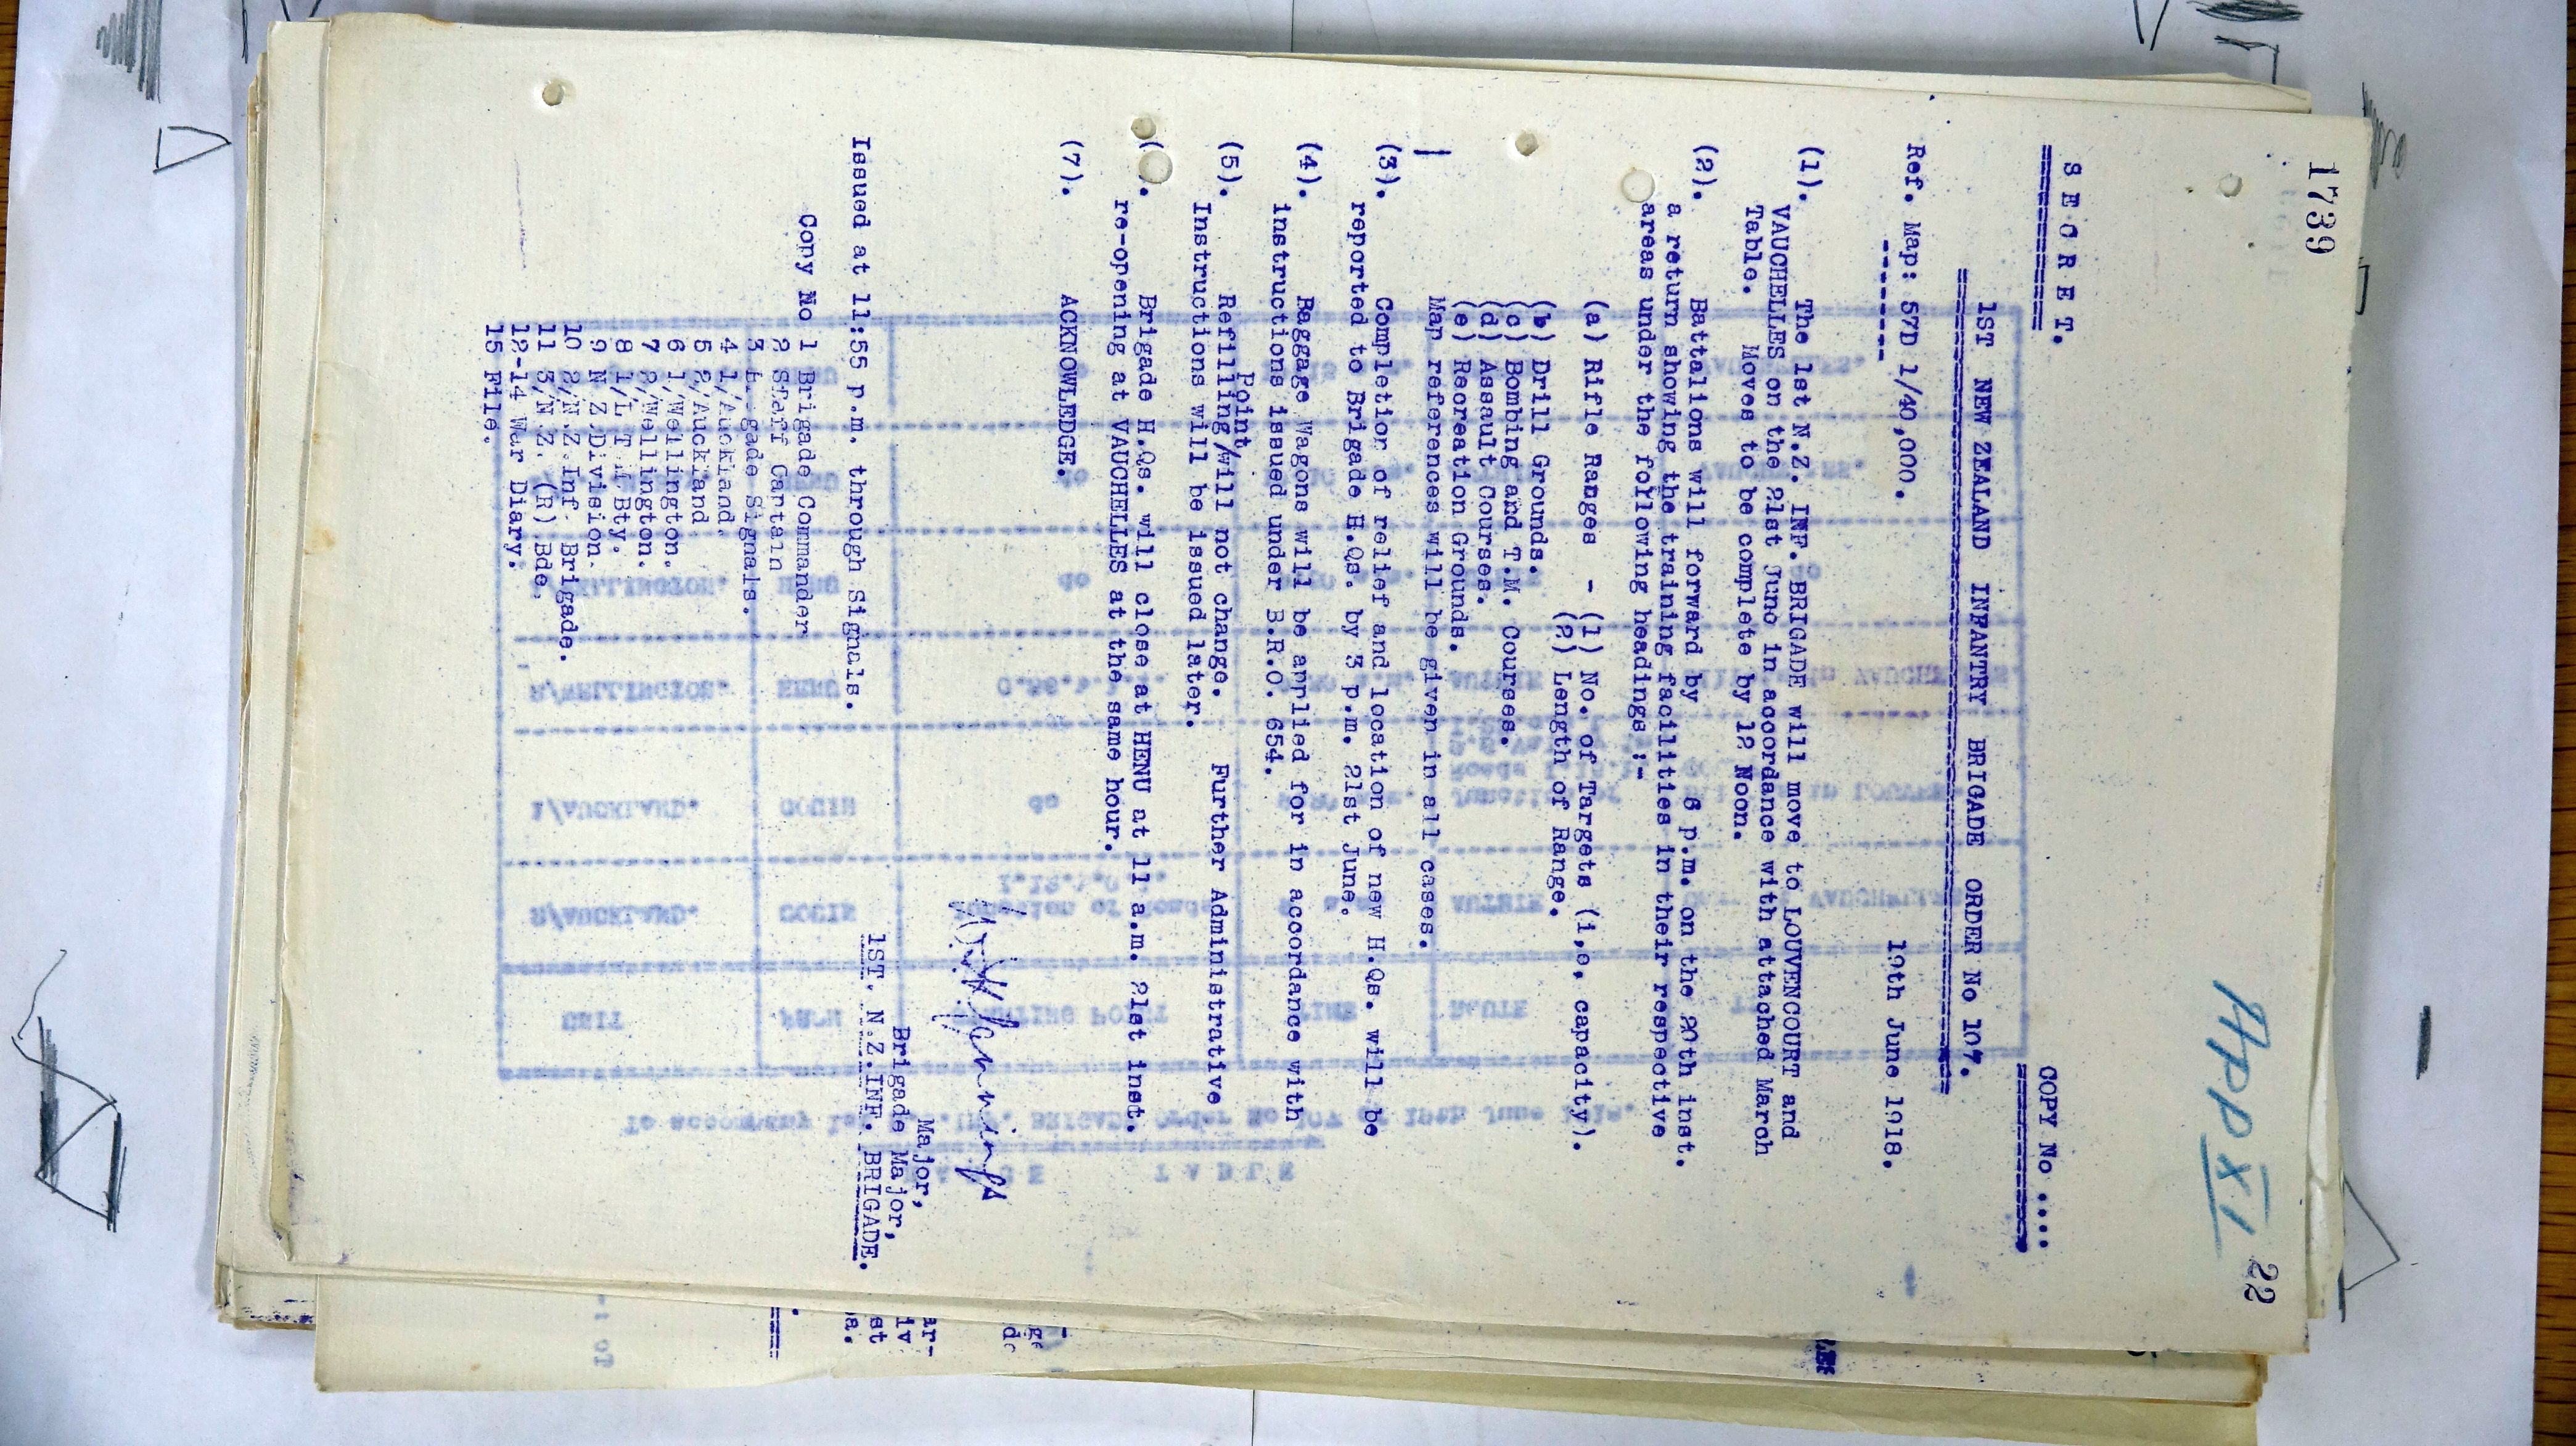 1739
App XI 22
S E C R E T.
COPY No ....
1ST NEW ZEALAND INFANTRY BRIGADE ORDER No 107.
Ref. Map: 57D 1/40,000.
19th June 1918.
(1). The 1st N.Z. INF. BRIGADE will move to LOUVENCOURT and
VAUCHELLES on the 21st June in accordance with attached March
Table. Moves to be complete by 12 Noon.
(2). Battalions will forward by 6 p.m. on the 20th inst.
a return showing the training facilities in their respective
areas under the following headings :-
(a) Rifle Ranges - (1) No. of Targets (i.e. capacity).
(2) Length of Range.
(b) Drill Grounds.
(c) Bombing and T.M. Courses.
(d) Assault Courses.
(e) Recreation Grounds.
Map references will be given in all cases.
(3). Completion of relief and location of new H.Qs. will be
reported to Brigade H.Qs. by 3 p.m. 21st June.
(4). Baggage Wagons will be applied for in accordance with
instructions issued under B.R.O. 654.
Point
(5). Refilling/will not change. Further Administrative
Instructions will be issued later.
( . Brigade H.Qs. will close at HENU at 11 a.m. 21st inst.
re-opening at VAUCHELLES at the same hour.
(7). ACKNOWLEDGE.
Major,
Brigade Major,
1ST. N.Z.INF. BRIGADE.
Issued at 11:55 p.m. through Signals.
Copy No 1 Brigade Commander
2 Staff Captain
3 Brigade Signals.
4 1/Auckland.
5 2/Auckland.
6 1/Wellington.
7 2/Wellington.
8 1/L T M Bty.
9 N Z Division.
10 2/N.Z.Inf. Brigade.
11 3/N.Z. (R) Bde.
12-14 War Diary.
15 File.